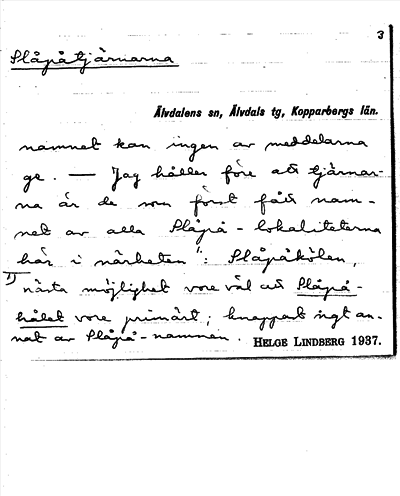 3
Slåpåtjärnarna
Älvdalens sn, Älvdals tg, Kopparbergs län.
namnet kan ingen av meddelarna
ge. — Jag håller före att tjärnar-
na är de som först fått nam-
net av alla Slåpå-lokaliteterna
här i närheten 1): Slåpåkölen,
1) nästa möjlighet vore väl att Slåpå-
hålet vore primärt; knappast ngt an-
nat av Slåpå-namnen.
HELGE LINDBERG 1937.